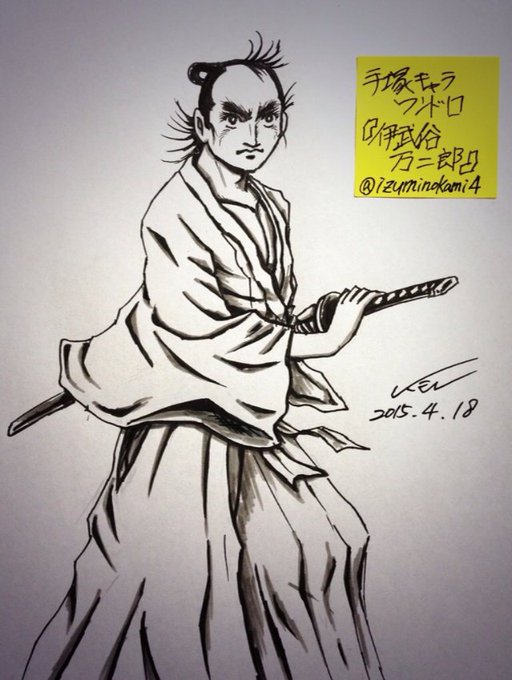 手塚キャラ
ワンドロ
『伊武谷
万二郎』
@izuminokami4
KEN
2015.4.18